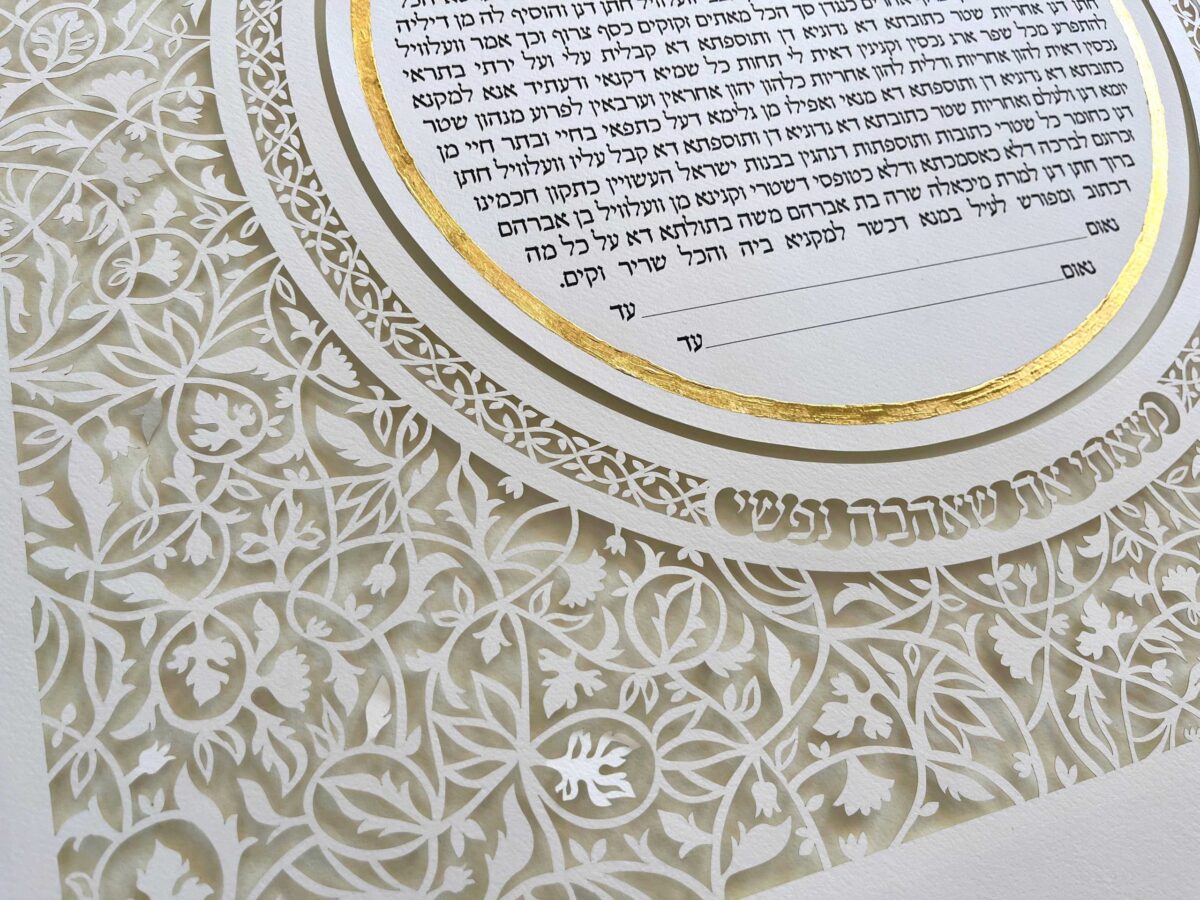 אחרים כנגדן סך הכל מאתים זקוקים כסף צרוף וכך אמר וועלוויל
חתן דנן אחריות שטר כתובתא דא נדוניא דן ותוספתא דא קבלית עלי ועל ירתי בתראי
להתפרע מכל שפר ארג נכסין וקנינין דאית לי תחות כל שמיא דקנאי ודעתיד אנא למקנא
נכסין דאית להון אחריות ודלית להון אחריות כלהון יהון אחראין וערבאין לפרוע מנהון שטר
כתובתא דא נדוניא דן ותוספתא דא מנאי ואפילו מן גלימא דעל כתפאי בחיי ובתר חיי מן
יומא דנן ולעלם ואחריות שטר כתובתא דא נדוניא דן ותוספתא דא קבל עליו וועלוויל חתן
דנן כחומר כל שטרי כתובות ותוספתות דנהגין בבנות ישראל העשויין כתקון חכמינו
זכרונם לברכה דלא כאסמכתא ודלא כטופסי דשטרי וקנינא מן וועלוויל בן אברהם
ברוך חתן דנן למרת מיכאלה שרה בת אברהם משה בתולתא דא על כל מה
דכתוב ומפורש לעיל במנא דכשר למקניא ביה והכל שריר וקים.
נאום עד
נאום עד
מצאתי את שאהבה נפשי